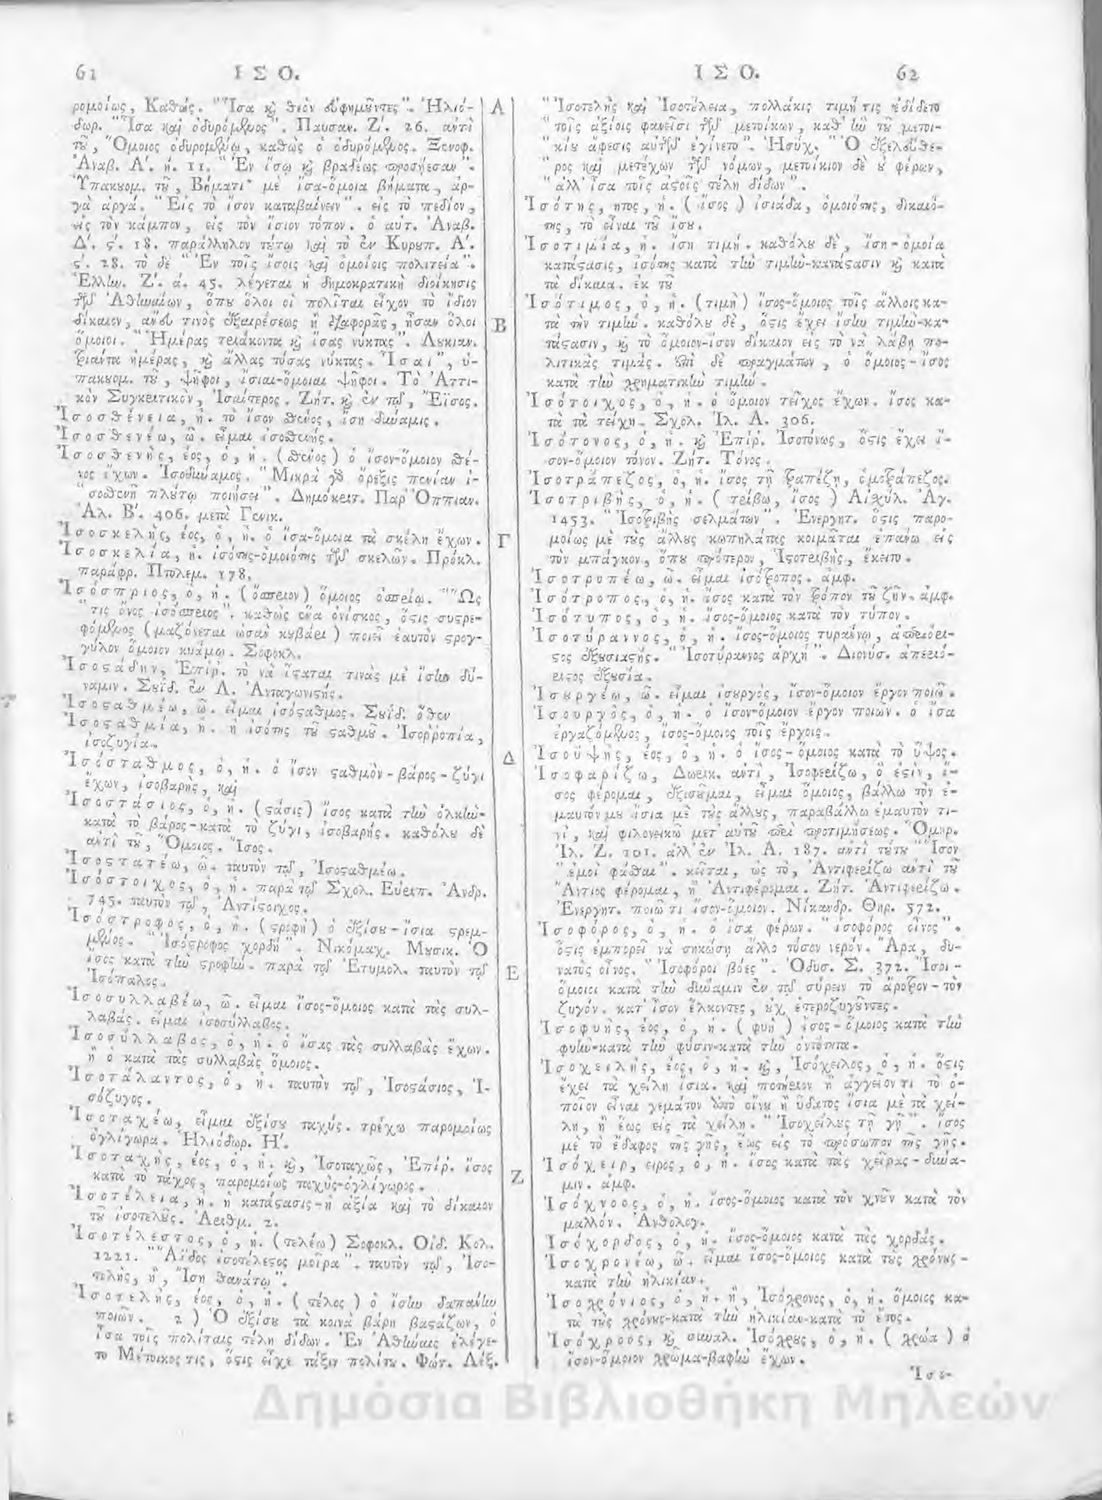 61 ΙΣΟ.
ρομοίως, Καθώς. "Ἴσα ϗ θεὸν εὐφημοῦντες". Ἡλιό-
δωρ. "Ἴσα καὶ ὀδυρόμενος". Παυσαν. Ζ΄. 26. ἀντὶ
τοῦ, Ὅμοιος ὀδυρομένῳ, καθὼς ὁ ὀδυρόμενος. Ξενοφ.
Ἀναβ. Α΄. ή. 11. "Ἐν ἴσῳ ϗ βραδέως προσῄεσαν".
Ὑπακουομ. τοῦ, Βήματι· μὲ ἴσα-ὅμοια βήματα, ἀρ-
γὰ ἀργά. "Εἰς τὸ ἴσον καταβαίνειν". εἰς τὸ πεδίον,
εἰς τὸν κάμπον, εἰς τὸν ἴσιον τόπον. ὁ αὐτ. Ἀναβ.
Δ΄. ϛ΄. 18. παράλληλον τούτῳ καὶ τὸ ἐν Κυρουπ. Α΄.
ϛ΄. 28. τὸ δὲ "Ἐν τοῖς ἴσοις καὶ ὁμοίοις πολιτεία".
Ἑλλην. Ζ΄. ά. 45. λέγεται ἡ δημοκρατικὴ διοίκησις
τῶν Ἀθηναίων, ὅπου ὅλοι οἱ πολῖται εἶχον τὸ ἴδιον
δίκαιον, ἄνευ τινὸς ἐξαιρέσεως ἢ διαφορᾶς, ἦσαν ὅλοι
ὅμοιοι. "Ἡμέρας τριάκοντα ϗ ἴσας νύκτας". Λουκιαν.
τριάντα ἡμέρας, ϗ ἄλλας τόσας νύκτας. "Ἴσαι", ὑ-
πακουομ. τοῦ, ψῆφοι, ἴσιαι-ὅμοιαι ψῆφοι. Τὸ Ἀττι-
κὸν Συγκριτικὸν, Ἰσαίτερος. Ζήτ. ϗ ἐν τῷ, Ἔϊσος.
Ἰσοσθένεια, ἡ. τὸ ἴσον σθένος, ἴση δύναμις.
Ἰσοσθενέω, ῶ. εἶμαι ἰσοσθενής.
Ἰσοσθενής, έος, ὁ, ἡ. (σθένος) ὁ ἴσον-ὅμοιον σθέ-
νος ἔχων. Ἰσοδύναμος. "Μικρὰ γὰρ ὄρεξις πενίαν ἰ-
"σοσθενῆ πλούτῳ ποιήσει". Δημόκριτ. Παρ' Ὀππιαν.
Ἁλ. Β΄. 406. μετὰ Γενικ.
Ἰσοσκελής, έος, ὁ, ἡ. ὁ ἴσα-ὅμοια τὰ σκέλη ἔχων.
Ἰσοσκελία, ἡ. ἰσότης-ὁμοιότης τῶν σκελῶν. Πρόκλ.
παράφρ. Πτολεμ. 178.
Ἰσόσπριος, ὁ, ἡ. (ὄσπριον) ὅμοιος ὀσπρίῳ. "Ὡς
"τις ὄνος ἰσόσπριος". καθὼς ἕνα ὀνίσκος, ὅστις συστρε-
φόμενος (μαζόνεται ὡσὰν κουβάρι) ποιεῖ ἑαυτὸν στρογ-
γύλον ὅμοιον κυάμῳ. Σοφοκλ.
Ἰσοστάδην, Ἐπίρ. τὸ νὰ ἵσταται τινὰς μὲ ἴσην δύ-
ναμιν. Σουΐδ. ἐν Λ. Ἀνταγωνιστής.
Ἰσοσταθμέω, ῶ. εἶμαι ἰσόσταθμος. Σουΐδ. ὅθεν
Ἰσοσταθμία, ἡ. ἡ ἰσότης τοῦ σταθμοῦ. Ἰσορροπία,
ἰσοζυγία.
Ἰσόσταθμος, ὁ, ἡ. ὁ ἴσον σταθμὸν-βάρος-ζύγι
ἔχων, ἰσοβαρής, καὶ
Ἰσοστάσιος, ὁ, ἡ. (στάσις) ἴσος κατὰ τὴν ὁλκὴν-
κατὰ τὸ βάρος-κατὰ τὸ ζύγι, ἰσοβαρής. καθόλου δὲ
ἀντὶ τοῦ, Ὅμοιος. Ἴσος.
Ἰσοστατέω, ῶ. ταυτὸν τῷ, Ἰσοσταθμέω.
Ἰσόστοιχος, ὁ, ἡ. παρὰ τῷ Σχολ. Εὐριπ. Ἀνδρ.
745. ταυτὸν τῷ, Ἀντίστοιχος.
Ἰσόστροφος, ὁ, ἡ. (στροφὴ) ὁ ἐξίσου-ἴσια στρεμ-
μένος. "Ἰσόστροφος χορδὴ". Νικόμαχ. Μουσικ. Ὁ
ἴσος κατὰ τὴν στροφήν. παρὰ τῷ Ἐτυμολ. ταυτὸν τῷ
Ἰσόπαλος.
Ἰσοσυλλαβέω, ῶ. εἶμαι ἴσος-ὅμοιος κατὰ τὰς συλ-
λαβάς. εἶμαι ἰσοσύλλαβος.
Ἰσοσύλλαβος, ὁ, ἡ. ὁ ἴσας τὰς συλλαβὰς ἔχων.
ἢ ὁ κατὰ τὰς συλλαβὰς ὅμοιος.
Ἰσοτάλαντος, ὁ, ἡ. ταυτὸν τῷ, Ἰσοστάσιος, Ἰ-
σόζυγος.
Ἰσοταχέω, εἶμαι ἐξίσου ταχύς. τρέχω παρομοίως
ὀγλίγωρα. Ἡλιόδωρ. Η΄.
Ἰσοταχής, έος, ὁ, ἡ. ϗ, Ἰσοταχῶς, Ἐπίρ. ἴσος
κατὰ τὸ τάχος, παρομοίως ταχὺς-ὀγλίγωρος.
Ἰσοτέλεια, ἡ. ἡ κατάστασις-ἡ ἀξία καὶ τὸ δίκαιον
τοῦ ἰσοτελοῦς. Ἀριθμ. 2.
Ἰσοτέλεστος, ὁ, ἡ. (τελέω) Σοφοκλ. Οἰδ. Κολ.
1221. "Ἄϊδος ἰσοτέλεστος μοῖρα". ταυτὸν τῷ, Ἰσο-
τελής, ἢ, Ἴση θανάτῳ".
Ἰσοτελής, έος, ὁ, ἡ. (τέλος) ὁ ἴσην δαπάνην
ποιῶν. 2) Ὁ ἐξίσου τὰ κοινὰ βάρη βαστάζων, ὁ
ἴσα τοῖς πολίταις τέλη δίδων. Ἐν Ἀθήναις ἐλέγε-
το Μέτοικός τις, ὅστις εἶχε τάξιν πολίτου. Φώτ. Λέξ.
Α
Β
Γ
Δ
Ε
Ζ
ΙΣΟ. 62
"Ἰσοτελὴς καὶ Ἰσοτέλεια, πολλάκις τιμή τις ἐδίδετο
"τοῖς ἀξίοις φανεῖσι τῶν μετοίκων, καθ' ἣν τοῦ μετοι-
"κίου ἄφεσις αὐτῶν ἐγίνετο". Ἡσύχ. "Ὁ ἐξελεύθε-
"ρος καὶ μετέχων τῶν νόμων, μετοίκιον δὲ οὐ φέρων,
"ἀλλ' ἴσα τοῖς ἀστοῖς τέλη διδών".
Ἰσότης, ητος, ἡ. (ἴσος) ἰσιάδα, ὁμοιότης, δικαιό-
της, τὸ εἶναι τοῦ ἴσου.
Ἰσοτιμία, ἡ. ἴση τιμή. καθόλου δὲ, ἴση-ὁμοία
κατάστασις, ἰσότης κατὰ τὴν τιμὴν-κατάστασιν ϗ κατὰ
τὰ δίκαια. ἐκ τοῦ
Ἰσότιμος, ὁ, ἡ. (τιμὴ) ἴσος-ὅμοιος τοῖς ἄλλοις κα-
τὰ τὴν τιμήν. καθόλου δὲ, ὅστις ἔχει ἴσην τιμὴν-κα-
τάστασιν, ϗ τὸ ὅμοιον-ἴσον δίκαιον εἰς τὸ νὰ λάβῃ πο-
λιτικὰς τιμάς. ἐπὶ δὲ πραγμάτων, ὁ ὅμοιος-ἴσος
κατὰ τὴν χρηματικὴν τιμήν.
Ἰσότοιχος, ὁ, ἡ. ὁ ὅμοιον τεῖχος ἔχων. ἴσος κα-
τὰ τὰ τείχη. Σχολ. Ἰλ. Α. 306.
Ἰσότονος, ὁ, ἡ. ϗ Ἐπίρ. Ἰσοτόνως, ὅστις ἔχει ἴ-
σον-ὅμοιον τόνον. Ζήτ. Τόνος.
Ἰσοτράπεζος, ὁ, ἡ. ἴσος τῇ τραπέζῃ, ὁμοτράπεζος.
Ἰσοτριβής, ὁ, ἡ. (τρίβω, ἴσος) Αἰσχύλ. Ἀγ.
1453. "Ἰσοτριβὴς σελμάτων". Ἐνεργητ. ὅστις παρο-
μοίως μὲ τοὺς ἄλλους κωπηλάτας κοιμᾶται ἐπάνω εἰς
τὸν μπάγκον, ὅπου πρότερον, Ἱστοτριβής, ἔκειτο.
Ἰσοτροπέω, ῶ. εἶμαι ἰσότροπος. ἀμφ.
Ἰσότροπος, ὁ, ἡ. ἴσος κατὰ τὸν τρόπον τοῦ ζῆν. ἀμφ.
Ἰσότυπος, ὁ, ἡ. ἴσος-ὅμοιος κατὰ τὸν τύπον.
Ἰσοτύραννος, ὁ, ἡ. ἴσος-ὅμοιος τυράννῳ, ἀπεριόρι-
στος ἐξουσιαστής. "Ἰσοτύραννος ἀρχὴ". Διονύσ. ἀπεριό-
ριστος ἐξουσία.
Ἰσουργέω, ῶ. εἶμαι ἰσουργός, ἴσον-ὅμοιον ἔργον ποιῶ.
Ἰσουργός, ὁ, ἡ. ὁ ἴσον-ὅμοιον ἔργον ποιῶν. ὁ ἴσα
ἐργαζόμενος, ἴσος-ὅμοιος τοῖς ἔργοις.
Ἰσοϋψής, έος, ὁ, ἡ. ὁ ἴσος-ὅμοιος κατὰ τὸ ὕψος.
Ἰσοφαρίζω, Δωρικ. ἀντὶ, Ἰσοφερίζω, ὅ ἐστιν, ἴ-
σος φέρομαι, ἐξισοῦμαι, εἶμαι ὅμοιος, βάλλω τὸν ἐ-
μαυτόν μου ἴσια μὲ τοὺς ἄλλους, παραβάλλω ἐμαυτὸν τι-
νὶ, καὶ φιλονεικῶ μετ' αὐτοῦ περὶ προτιμήσεως. Ὁμηρ.
Ἰλ. Ζ. 101. ἀλλ' ἐν Ἰλ. Α. 187. ἀντὶ τούτου "Ἶσον
"ἐμοὶ φάσθαι". κεῖται, ὡς τὸ, Ἀντιφερίζω ἀντὶ τοῦ
Ἀντίος φέρομαι, ἢ Ἀντιφέρομαι. Ζήτ. Ἀντιφερίζω.
Ἐνεργητ. ποιῶ τι ἴσον-ὅμοιον. Νίκανδρ. Θηρ. 572.
Ἰσοφόρος, ὁ, ἡ. ὁ ἴσα φέρων. "ἰσοφόρος οἶνος".
ὅστις ἐμπορεῖ νὰ σηκώσῃ ἄλλο τόσον νερόν. Ἄρα, δυ-
νατὸς οἶνος. "Ἰσοφόροι βόες". Ὀδυσ. Σ. 372. Ἴσοι-
ὅμοιοι κατὰ τὴν δύναμιν ἐν τῷ σύρειν τὸ ἄροτρον-τὸν
ζυγόν. κατ' ἴσον ἕλκοντες, οὐχ ἑτεροζυγοῦντες.
Ἰσοφυής, έος, ὁ, ἡ. (φυὴ) ἴσος-ὅμοιος κατὰ τὴν
φυὴν-κατὰ τὴν φύσιν-κατὰ τὴν ὀντότητα.
Ἰσοχειλής, έος, ὁ, ἡ. ϗ, Ἰσόχειλος, ὁ, ἡ. ὅστις
ἔχει τὰ χείλη ἴσια. καὶ ποτήριον ἢ ἀγγεῖόν τι τὸ ὁ-
ποῖον εἶναι γεμάτον ἀπὸ οἴνου ἢ ὕδατος ἴσια μὲ τὰ χεί-
λη, ἢ ἕως εἰς τὰ χείλη. "Ἰσοχείλους τῇ γῇ". ἴσος
μὲ τὸ ἔδαφος τῆς γῆς, ἕως εἰς τὸ πρόσωπον τῆς γῆς.
Ἰσόχειρ, ειρος, ὁ, ἡ. ἴσος κατὰ τὰς χεῖρας-δύνα-
μιν. ἀμφ.
Ἰσόχνοος, ὁ, ἡ. ἴσος-ὅμοιος κατὰ τὸν χνοῦν κατὰ τὸν
μαλλόν. Ἀνθολογ.
Ἰσόχορδος, ὁ, ἡ. ἴσος-ὅμοιος κατὰ τὰς χορδάς.
Ἰσοχρονέω, ῶ. εἶμαι ἴσος-ὅμοιος κατὰ τοὺς χρόνους-
κατὰ τὴν ἡλικίαν.
Ἰσοχρόνιος, ὁ, ἡ. ἢ, Ἰσόχρονος, ὁ, ἡ. ὅμοιος κα-
τὰ τοὺς χρόνους-κατὰ τὴν ἡλικίαν-κατὰ τὸ ἔτος.
Ἰσόχροος, ϗ συναλ. Ἰσόχρους, ὁ, ἡ. (χρόα) ὁ
ἴσον-ὅμοιον χρῶμα-βαφὴν ἔχων.
Ἰσο-
Δημόσια Βιβλιοθήκη Μηλεών